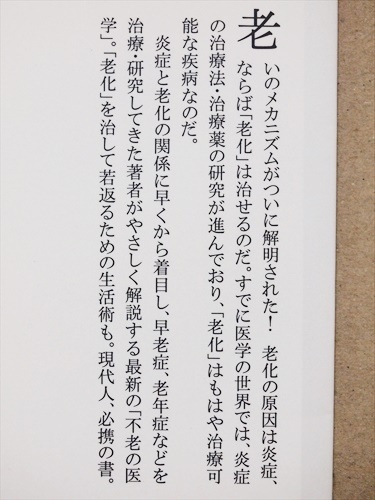 老いのメカニズムがついに解明された！ 老化の原因は炎症、
ならば「老化」は治せるのだ。すでに医学の世界では、炎症
の治療法・治療薬の研究が進んでおり、「老化」はもはや治療可
能な疾病なのだ。
炎症と老化の関係に早くから着目し、早老症、老年症などを
治療・研究してきた著者がやさしく解説する最新の「不老の医
学」。「老化」を治して若返るための生活術も。現代人、必携の書。